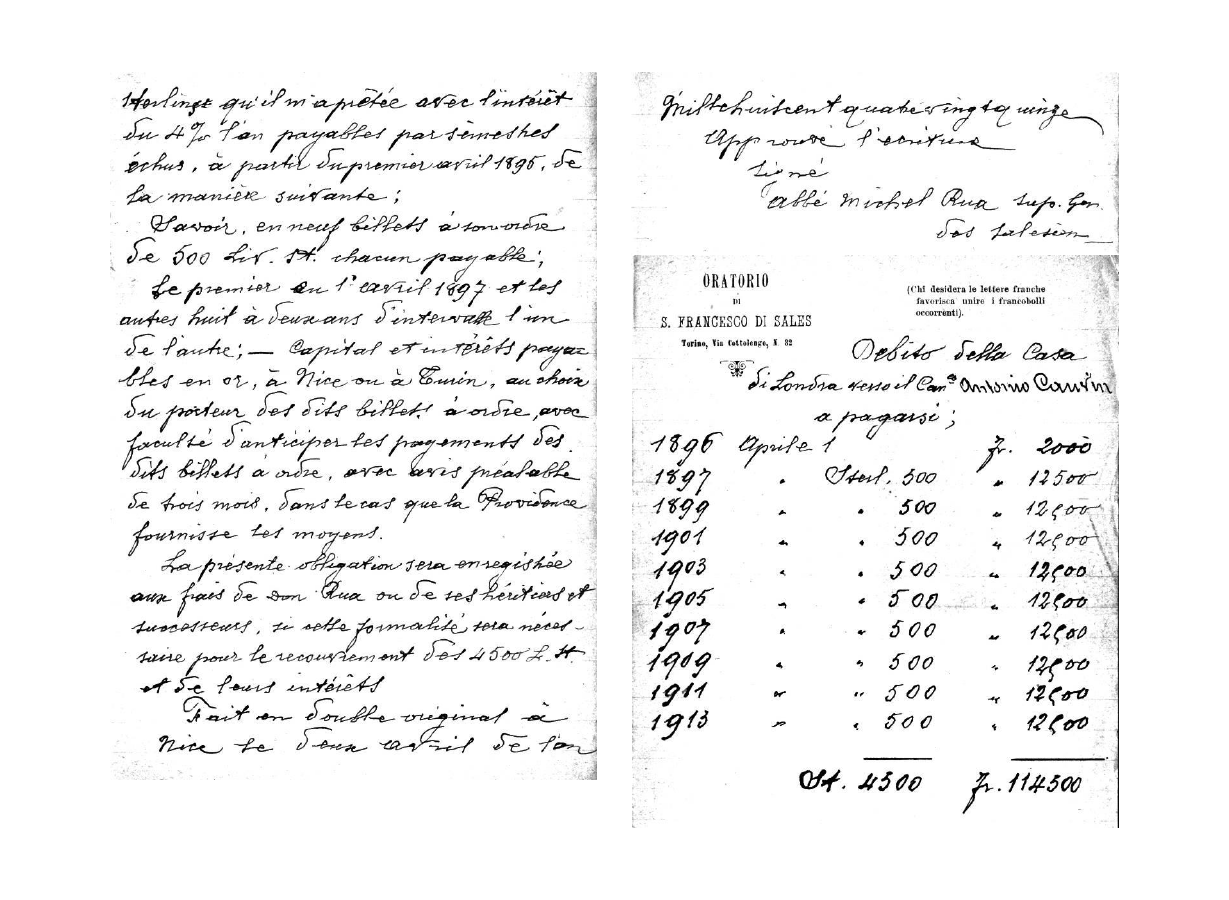 Sterlings qu'il m'a prêtée avec l'intérêt
du 4% l'an payables par semestres
échus, à partir du premier avril 1895, de
la manière suivante;
Savoir, en neuf billets à son ordre
de 500 Liv. St. chacun payable;
Le premier au 1r avril 1897 et les
autres huit à deux ans d'intervalle l'un
de l'autre; — Capital et intérêts paya-
bles en or, à Nice ou à Turin, au choix
du porteur des dits billets à ordre, avec
faculté d'anticiper les payements des
dits billets à ordre, avec avis préalable
de trois mois, dans le cas que la Providence
fournisse les moyens.
La présente obligation sera enregistrée
aux frais de Don Rua ou de ses héritiers et
successeurs, si cette formalité sera néces-
saire pour le recouvrement des 4500 L. St.
et de leurs intérêts
Fait en double original à
Nice le deux avril de l'an
Milhuitcent quatrevingtquinze
Approuvé l'écriture
Signé
abbé Michel Rua Sup. Gen.
des Salésiens
ORATORIO
DI
S. FRANCESCO DI SALES
Torino, Via Cottolengo, N. 32
(Chi desidera le lettere franche
favorisca unire i francobolli
occorrenti).
Debito della Casa
di Londra verso il Can.co Antonio Cauvin
a pagarsi;
1896 Aprile 1 Fr. 2000
1897 " Sterl. 500 " 12500
1899 " " 500 " 12500
1901 " " 500 " 12500
1903 " " 500 " 12500
1905 " " 500 " 12500
1907 " " 500 " 12500
1909 " " 500 " 12500
1911 " " 500 " 12500
1913 " " 500 " 12500
St. 4500 Fr. 114500